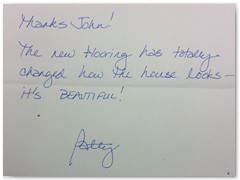 Thanks John!
The new flooring has totally
changed how the house looks—
it's BEAUTIFUL!
Patty